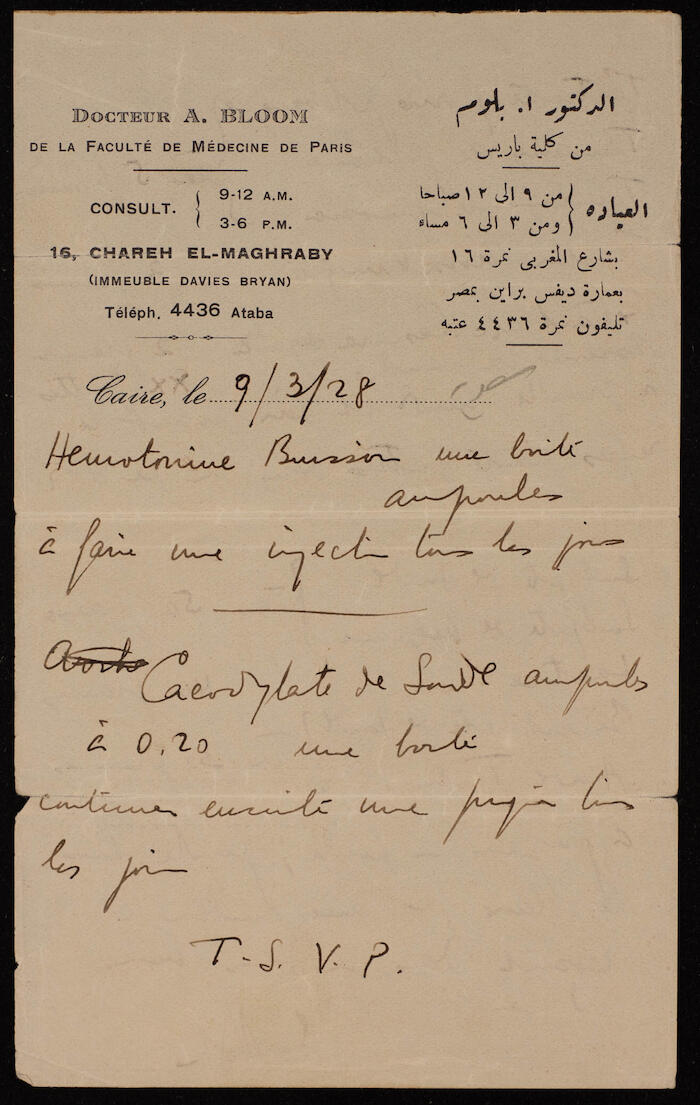 Docteur A. BLOOM
de la Faculté de Médecine de Paris
CONSULT. { 9-12 A.M.
3-6 P.M.
16, CHAREH EL-MAGHRABY
(IMMEUBLE DAVIES BRYAN)
Téléph. 4436 Ataba
الدكتور ا. بلوم
من كلية باريس
العياده { من ٩ الى ١٢ صباحا
ومن ٣ الى ٦ مساء
بشارع المغربى نمرة ١٦
بعمارة ديفس براين بمصر
تليفون نمرة ٤٤٣٦ عتبه
Caire, le 9/3/28
Hemotonine Buisson une boite
ampoules
à faire une injection tous les jours
Cacodylate de Soude ampoules
à 0.20 une boite
continuer ensuite une piqûre tous
les jours
T.S.V.P.